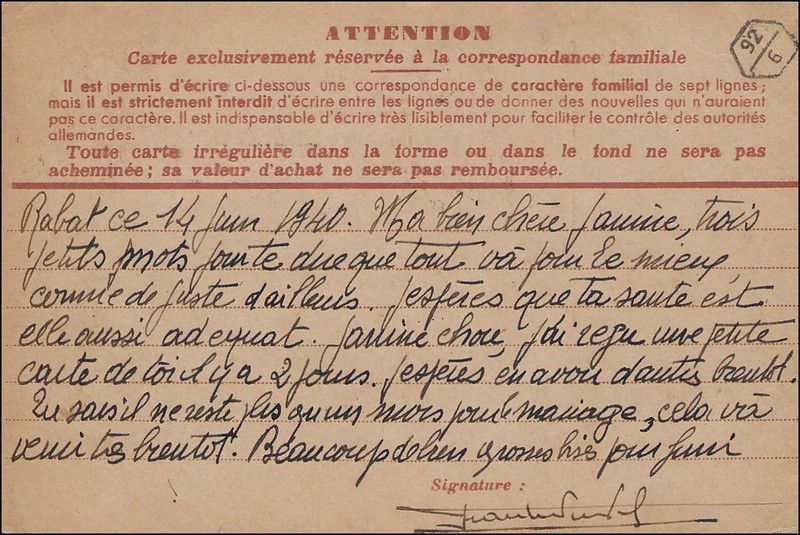 ATTENTION
Carte exclusivement réservée à la correspondance familiale
92
6
Il est permis d'écrire ci-dessous une correspondance de caractère familial de sept lignes;
mais il est strictement interdit d'écrire entre les lignes ou de donner des nouvelles qui n'auraient
pas ce caractère. Il est indispensable d'écrire très lisiblement pour faciliter le contrôle des autorités
allemandes.
Toute carte irrégulière dans la forme ou dans le fond ne sera pas
acheminée; sa valeur d'achat ne sera pas remboursée.
Rabat ce 14 Juin 1940. Ma bien chère Janine, trois
petits mots pour te dire que tout và pour le mieux,
comme de juste d'ailleurs. J'espères que ta santé est
elle aussi adequat. Janine chère, j'ai reçu une petite
carte de toi il y a 2 jours. J'espères en avoir d'autres bientot.
Tu sais il ne reste plus qu'un mois pour le mariage, cela và
venir très bientot. Beaucoup de bien grosses bises pour finir
Signature :